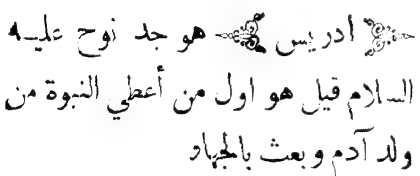 ادريس هو جد نوح عليه
السلام قيل هو اول من أعطي النبوة من
ولد آدم وبعث بالجهاد